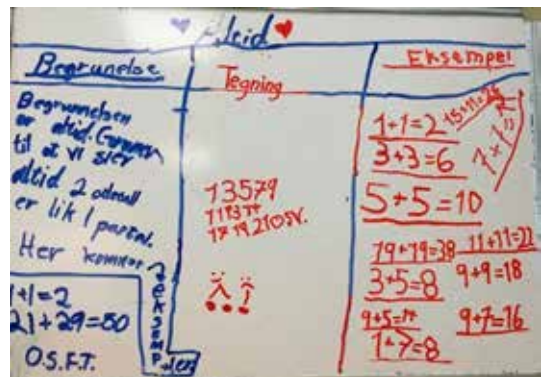 Altid
Begrunelse
Begrunnelsen
er altid. Grunnen
til at vi sier
altid 2 odetall
er lik 1 partal.
Her kommer
2 eksempler
1+1=2
21+29=50
O.S.F.T.
Tegning
13579
17 19 21 OSV.
Eksempel
1+1=2
15+11=26
3+3=6
7+7=
5+5=10
19+19=38 11+11=22
3+5=8 9+9=18
9+5=14 9+7=16
1+7=8